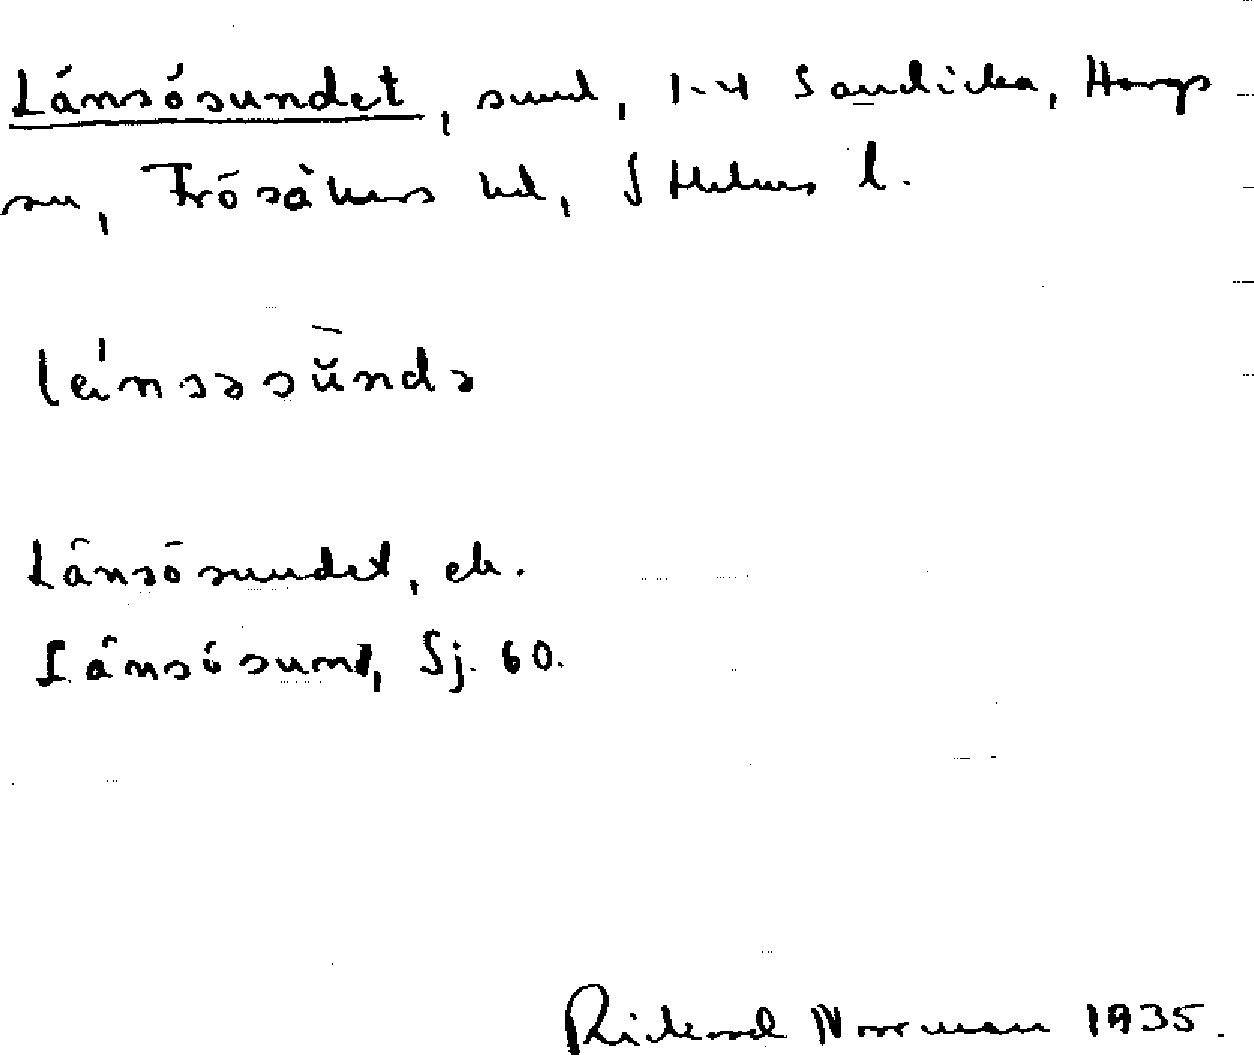 Länsösundet, sund, 1-4 Sandika, Hargs
sn, Frösåkers hd, Sthlms l.
lénsəsŭ̄ndə
Länsösundet, ek.
Länsösund, Sj. 60.
Rickard Norrman 1935.